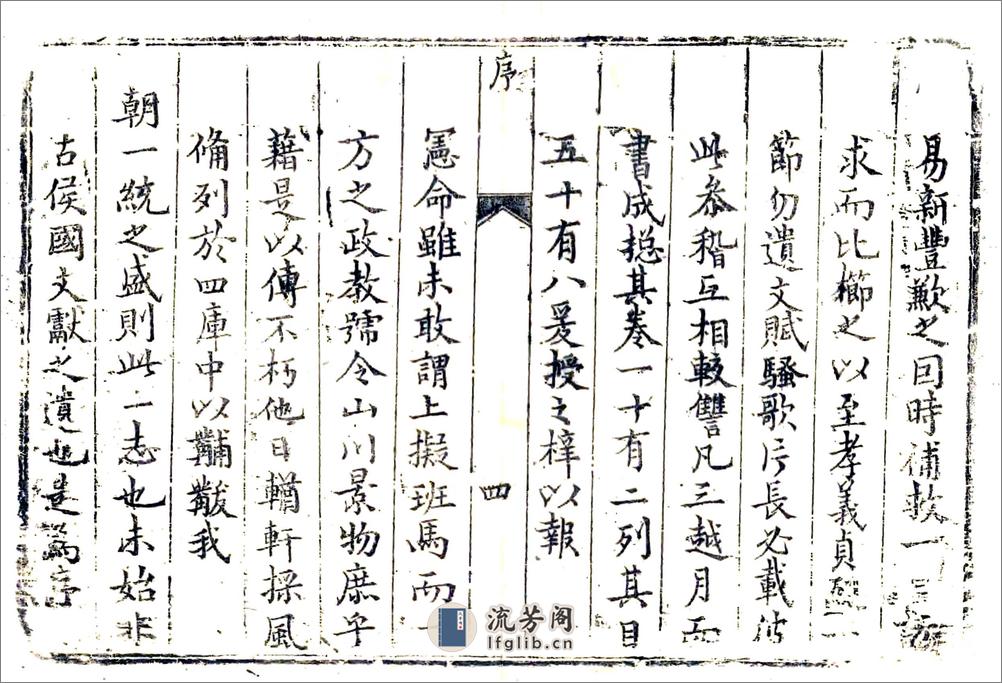 易新豐歉之回時補救一
求而比櫛之以至孝義貞
節勿遺文賦騷歌片長必載彼
此叅稽互相較讐凡三越月而
書成揔其卷一十有二列其目
五十有八爰授之梓以報
序
四
憲命雖未敢謂上擬班馬而一
方之政教號令山川景物庶乎
藉是以傳不朽他日輶軒採風
偹列於四庫中以黼黻我
朝一統之盛則此一志也未始非
古侯國文獻之遺也是爲序
流芳阁
lfglib.cn